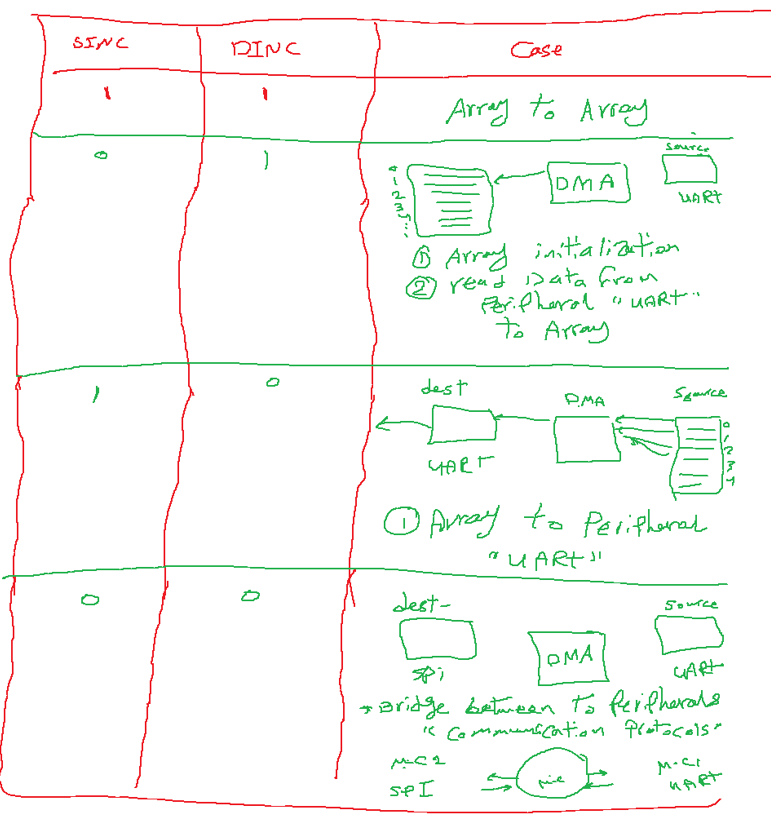 SINC DINC Case
1 1 Array to Array
0 1
source
0
1
2
3
4
DMA
UART
① Array initialization
② read Data from
Peripheral "UART"
to Array
1 0
dest DMA Source
0
1
2
3
4
UART
① Array to Peripheral
"UART"
0 0
dest Source
DMA
SPi UART
→ Bridge between to Peripherals
"Communication Protocols"
M.C2 M.C1
SPI UART